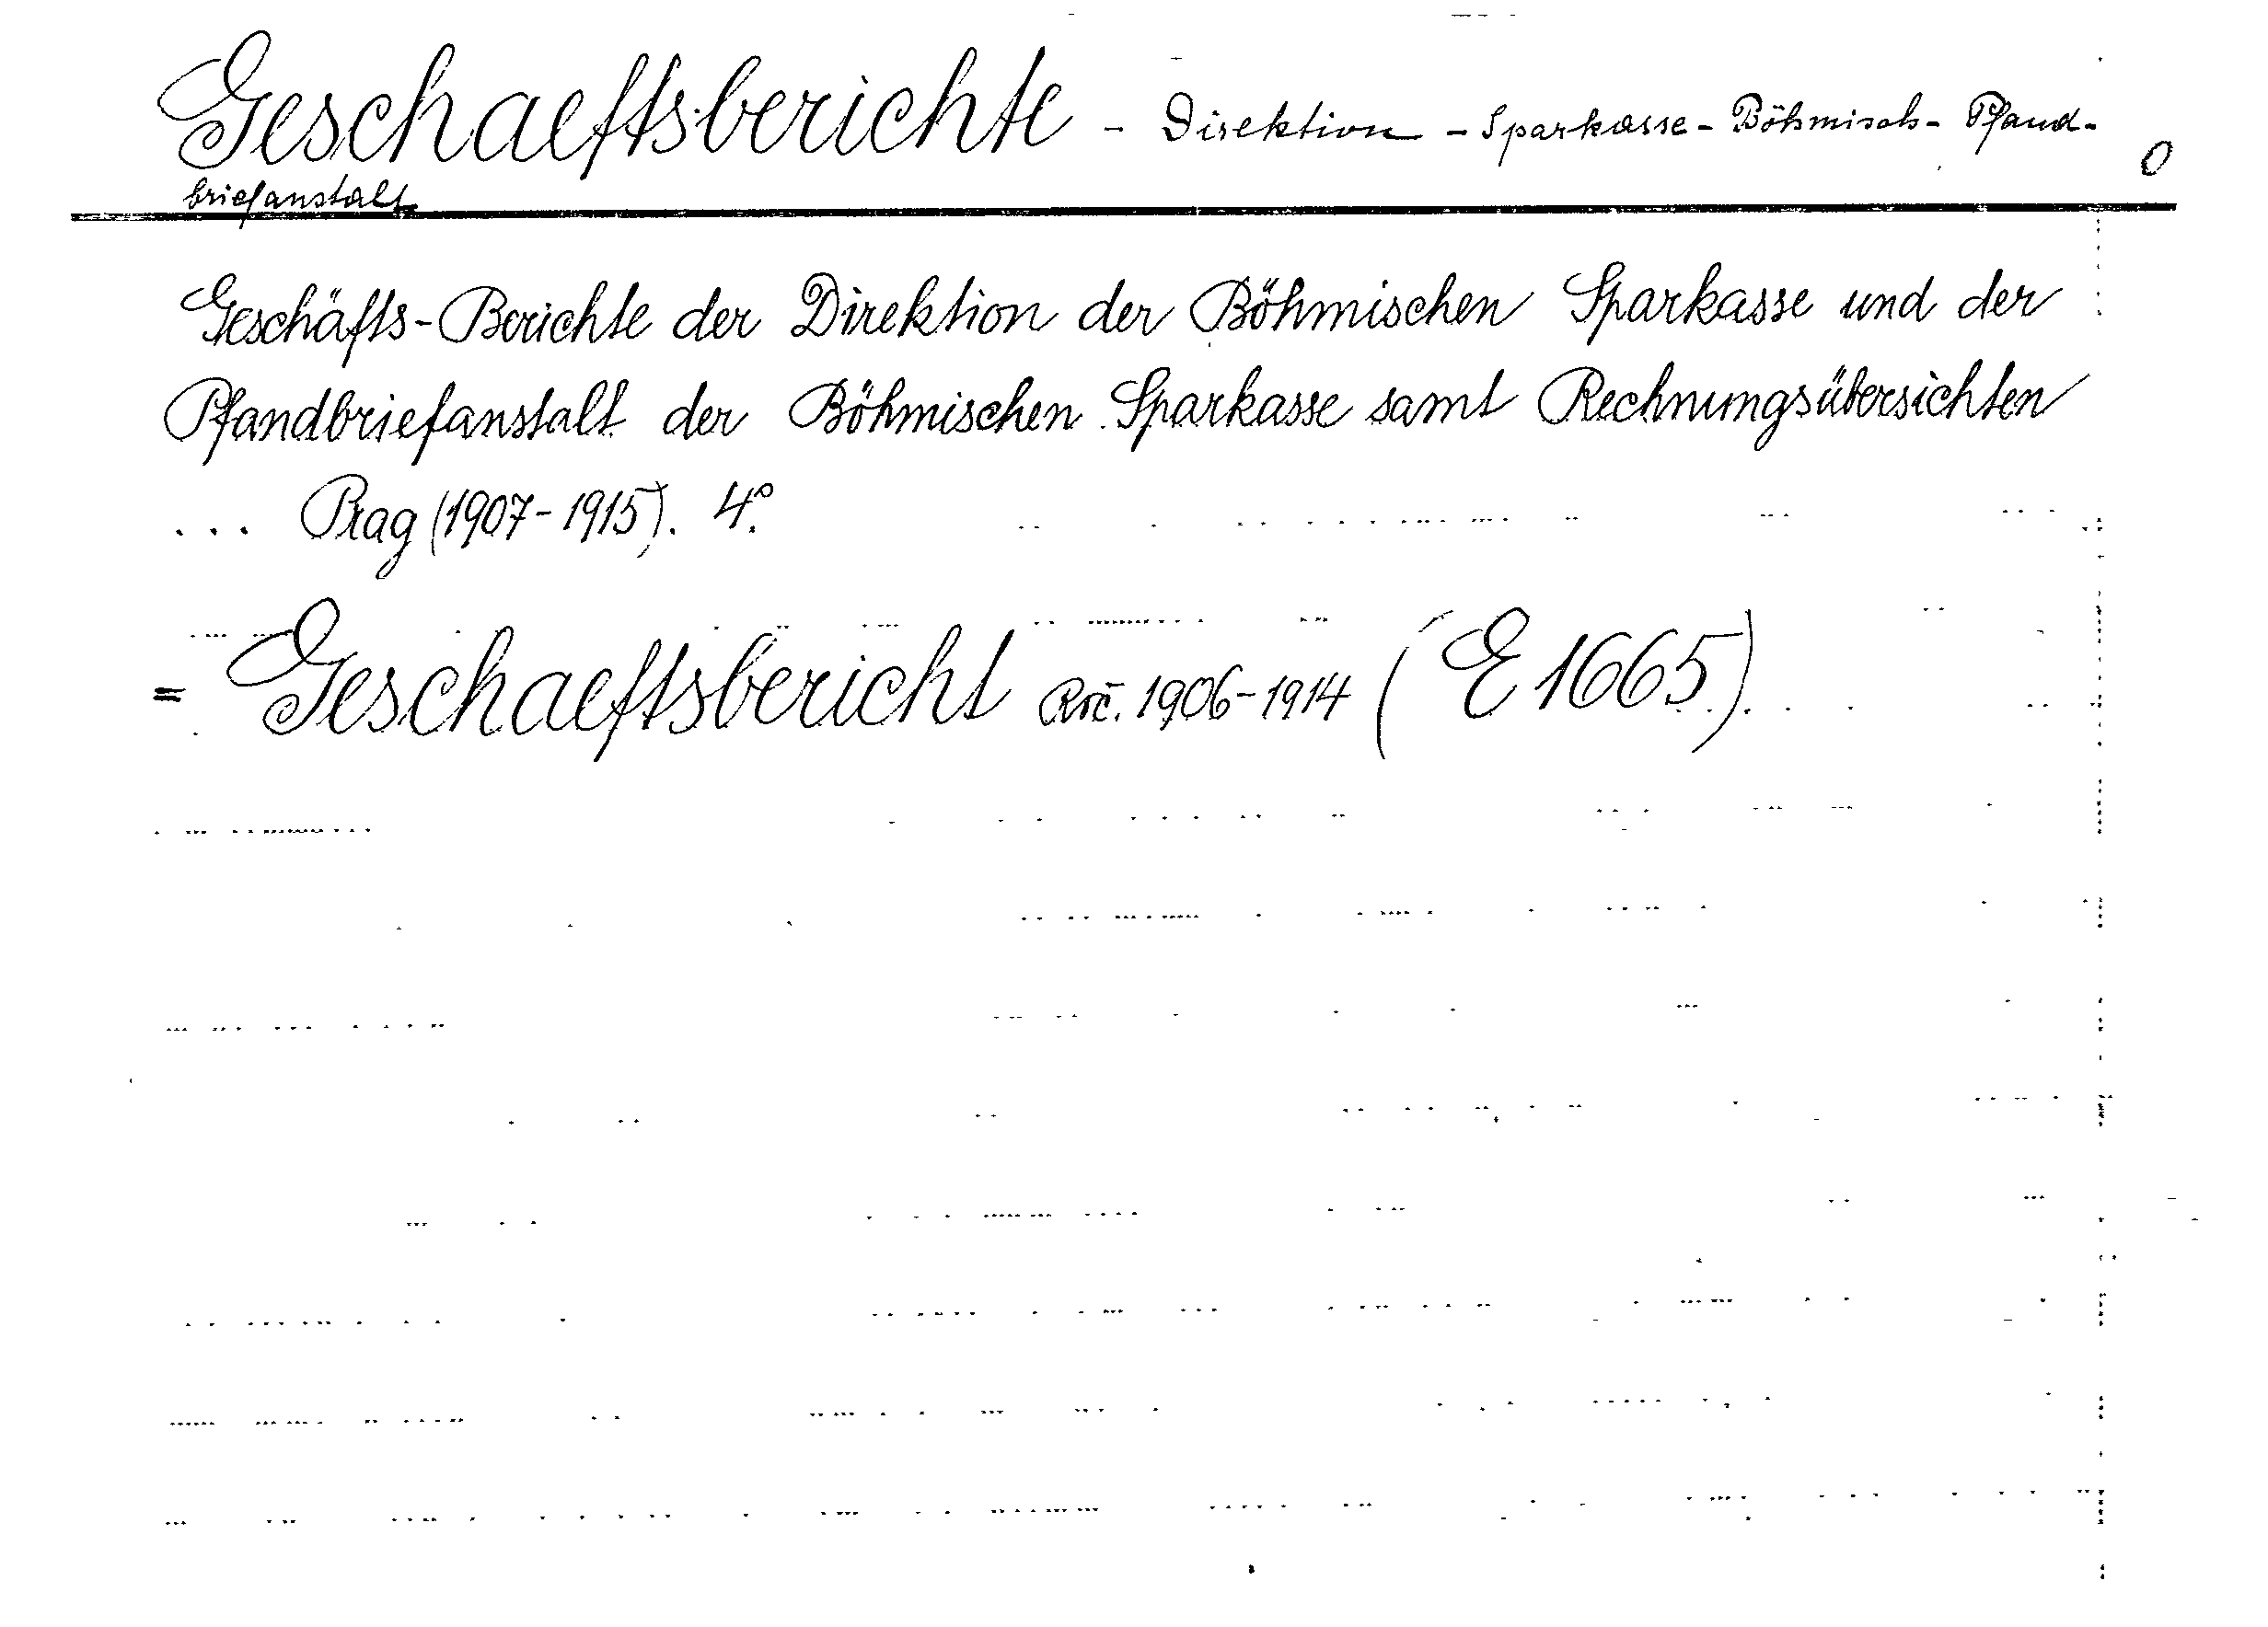 Geschaeftsberichte - Direktion - Sparkasse - Böhmisch - Pfand-
0
briefanstalt
Geschäfts-Berichte der Direktion der Böhmischen Sparkasse und der
Pfandbriefanstalt der Böhmischen Sparkasse samt Rechnungsübersichten
... Prag (1907-1915). 4°.
= Geschaeftsbericht Roč. 1906-1914 (E 1665).